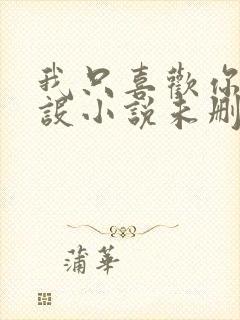 我只喜歡你
設小說未刪
蒲華